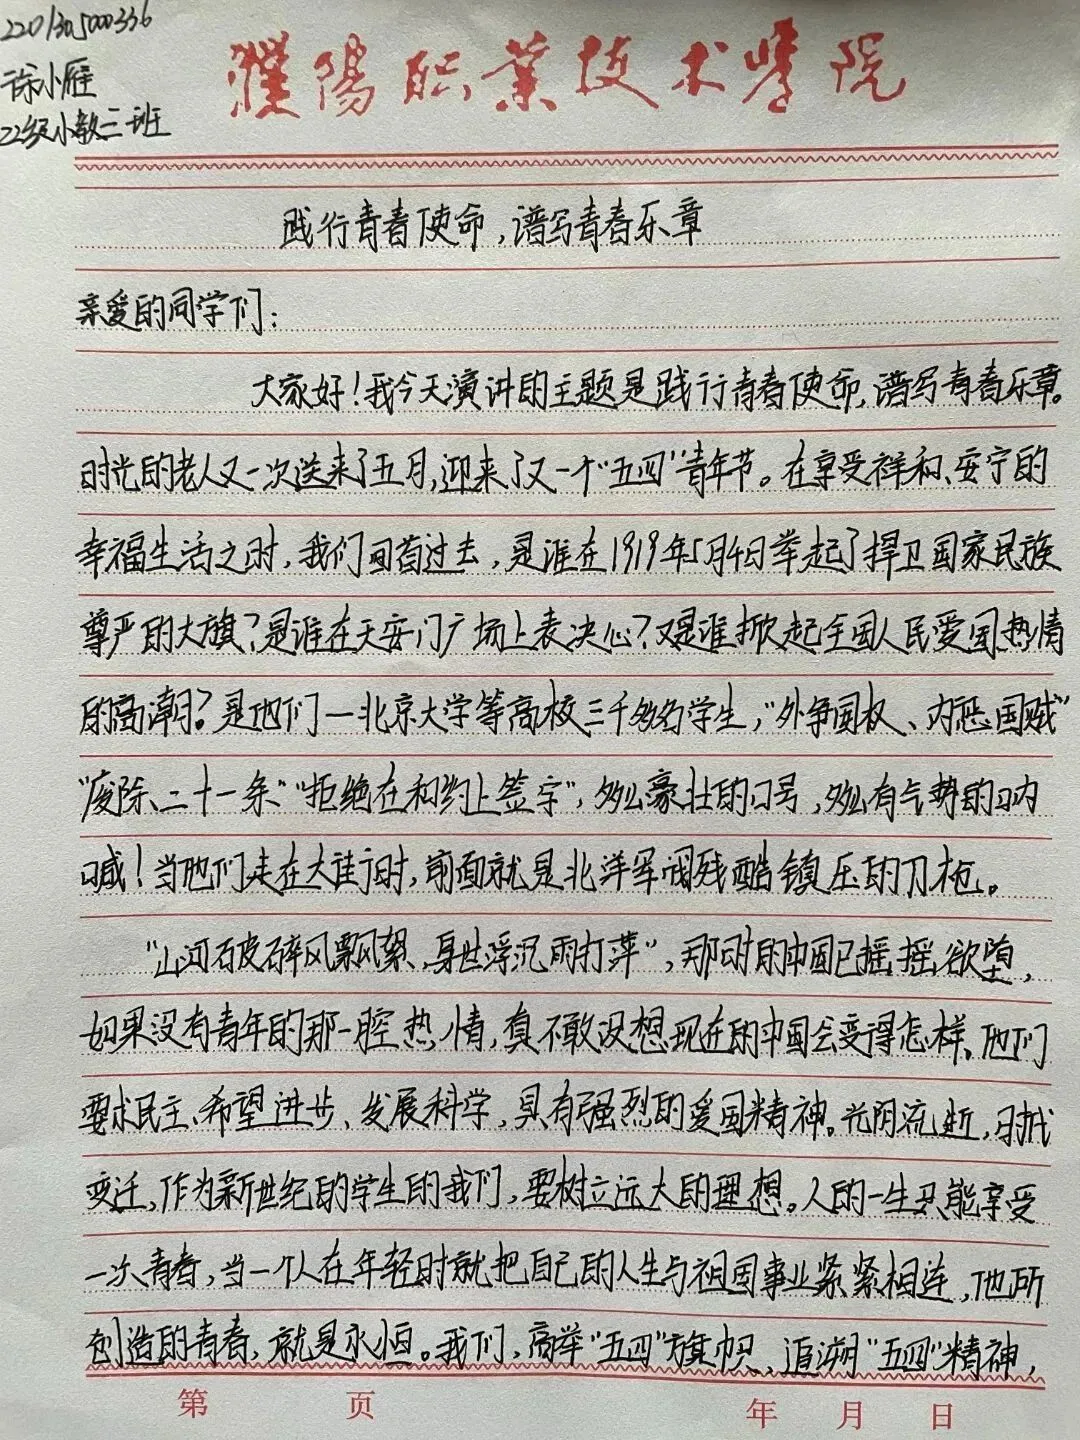 22013050000336
徐小雁
22级小教三班
濮陽职業技术學院
践行青春使命,谱写青春乐章
亲爱的同学们:
大家好!我今天演讲的主题是践行青春使命,谱写青春乐章。
时光的老人又一次送来了五月,迎来了又一个“五四”青年节。在享受祥和、安宁的
幸福生活之时,我们回首过去,是谁在1919年5月4日举起了捍卫国家民族
尊严的大旗?是谁在天安门广场上表决心?又是谁掀起全国人民爱国热情
的高潮?是他们—北京大学等高校三千多名学生,“外争国权、内惩国贼”
“废除、二十一条”“拒绝在和约上签字”,多么豪壮的口号,多么有气势的呐
喊!当他们走在大街时,前面就是北洋军阀残酷镇压的刀枪。
“山河破碎风飘絮、身世浮沉雨打萍”,那时的中国已摇摇欲堕,
如果没有青年的那一腔热情,真不敢设想现在的中国会变得怎样、他们
要求民主、希望进步、发展科学,具有强烈的爱国精神。光阴流逝,时代
变迁,作为新世纪的学生的我们,要树立远大的理想。人的一生只能享受
一次青春,当一个人在年轻时就把自己的人生与祖国事业紧紧相连,他所
创造的青春,就是永恒。我们,高举“五四”旗帜、追溯“五四”精神,
第 页 年 月 日